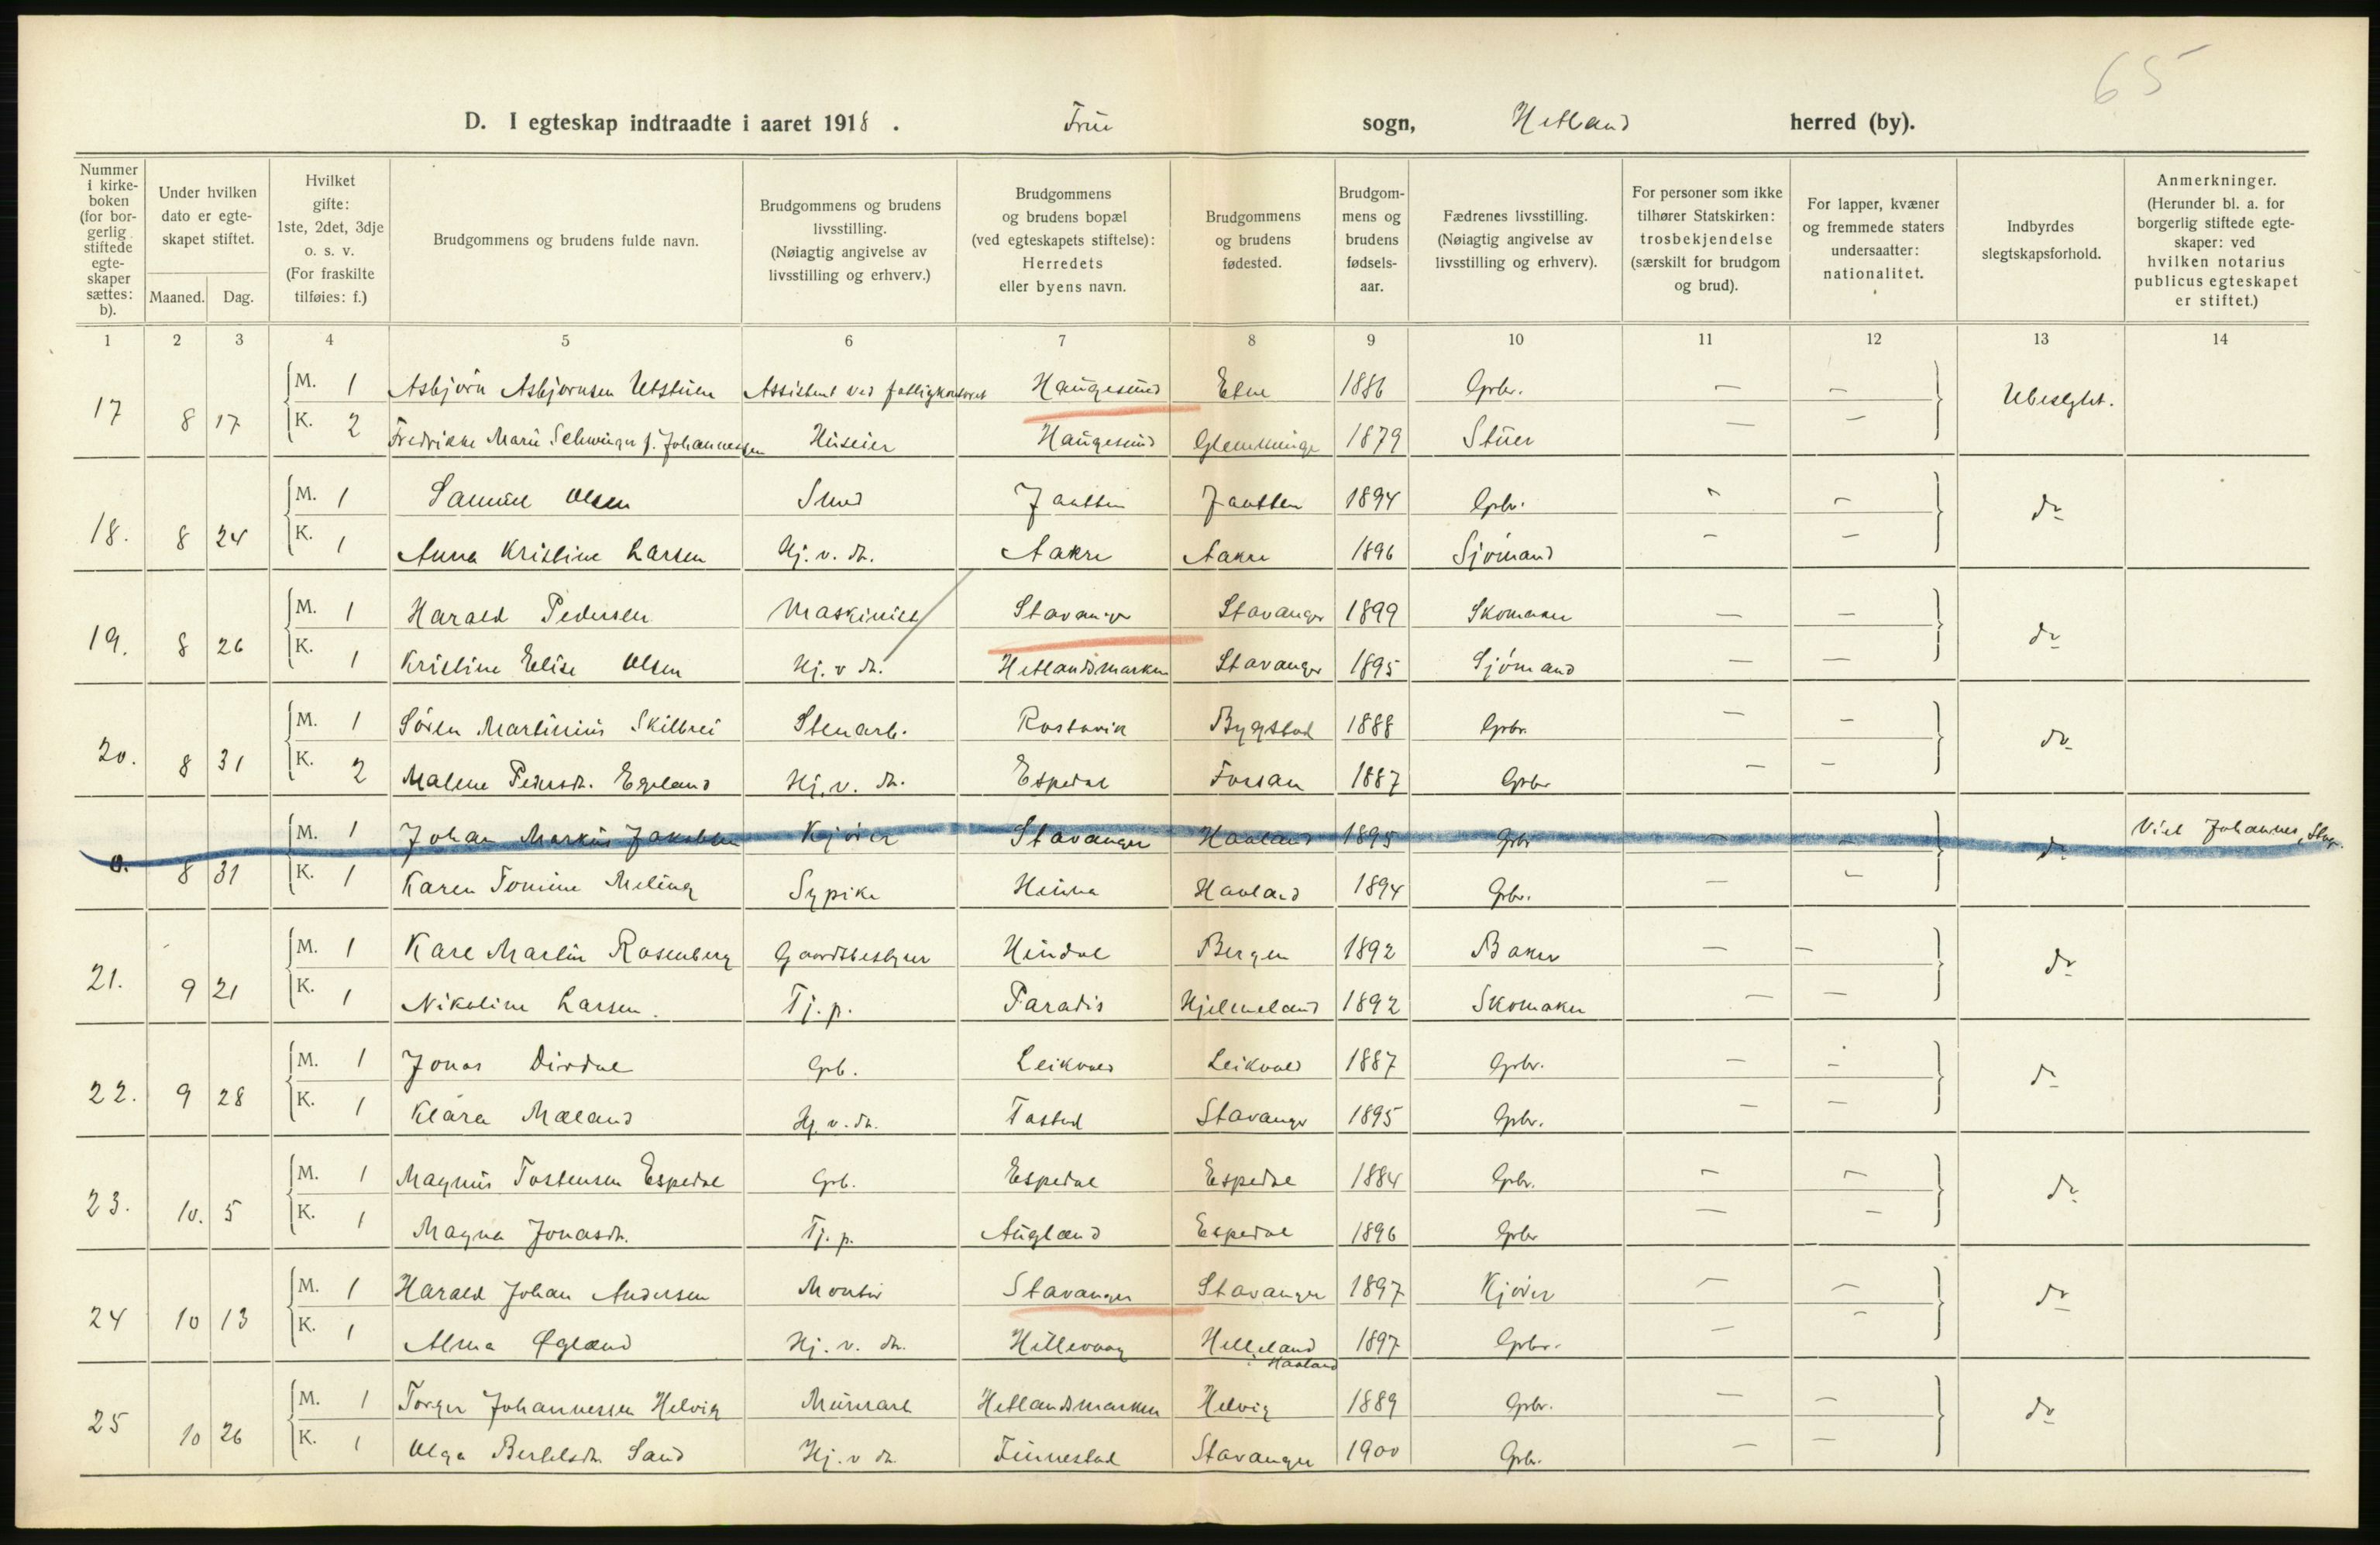 65
D. I egteskap indtraadte i aaret 1918. Frue sogn, Hetland herred (by).
Nummer i kirkeboken (for borgerlig stiftede egteskaper sættes: b).
Under hvilken dato er egteskapet stiftet.
Maaned. Dag.
Hvilket gifte: 1ste, 2det, 3dje o. s. v. (For fraskilte tilføies: f.)
Brudgommens og brudens fulde navn.
Brudgommens og brudens livsstilling. (Nøiagtig angivelse av livsstilling og erhverv.)
Brudgommens og brudens bopæl (ved egteskapets stiftelse): Herredets eller byens navn.
Brudgommens og brudens fødested.
Brudgommens og brudens fødselsaar.
Fædrenes livsstilling. (Nøiagtig angivelse av livsstilling og erhverv).
For personer som ikke tilhører Statskirken: trosbekjendelse (særskilt for brudgom og brud).
For lapper, kvæner og fremmede staters undersaatter: nationalitet.
Indbyrdes slegtskapsforhold.
Anmerkninger. (Herunder bl. a. for borgerlig stiftede egteskaper: ved hvilken notarius publicus egteskapet er stiftet.)
1 2 3 4 5 6 7 8 9 10 11 12 13 14
17 8 17 M. 1 Asbjørn Asbjørnsen Utstuen Assistent ved fattigkontoret Haugesund Etne 1886 Grbr. — — Ubeslgtet.
K. 2 Fredrikke Marie Schwinger f. Johannessen Huseier Haugesund Glemminge 1879 Stuer — —
18. 8 24 M. 1 Samuel Olsen Smed Jaatten Jaatten 1894 Grbr. — — do
K. 1 Anna Kristine Larsen Hj. v. dt. Aakre Aakre 1896 Sjömand — —
19. 8 26 M. 1 Harald Pedersen Maskinist Stavanger Stavanger 1899 Skomaker — — do
K. 1 Kristine Elise Olsen Hj. v dt. Hetlandsmarken Stavanger 1895 Sjömand — —
20. 8 31 M. 1 Sören Martinius Skilbrei Stenarb. Rostavik Bygstad 1888 Grbr. — — do
K. 2 Malene Pedersdt. Egeland Hj. v. dt. Espedal Forsan 1887 Grbr — —
0. 8 31 M. 1 Johan Markus Jakobsen Kjörer Stavanger Haaland 1895 Grbr — do Viet Johannes, Stvgr.
K. 1 Karen Tomine Meling Sypike Hinna Haaland 1894 Grbr. — —
21. 9 21 M. 1 Karl Martin Rosenberg Gaardsbestyrer Hindal Bergen 1892 Baker — — do
K. 1 Nikoline Larsen. Tj. p. Paradis Hjelmeland 1892 Skomaker — —
22. 9 28 M. 1 Jonas Dirdal Grb. Leikvold Leikvold 1887 Grbr. — — do
K. 1 Klara Mæland Hj. v. dt. Tasted Stavanger 1895 Grbr. — —
23. 10. 5 M. 1 Magnus Tostensen Espedal Grb. Espedal Espedal 1884 Grbr. — — do
K. 1 Magna Jonasdt. Tj. p. Augland Espedal 1896 Grbr — —
24 10 13 M. 1 Harald Johan Andersen Montör Stavanger Stavanger 1897 Kjörer — — do
K. 1 Alma Øgland Hj. v. dt. Hillevaag Helleland Haaland 1897 Grbr. — —
25 10 26 M. 1 Torger Johannessen Helvig Murarb Hetlandsmarken Helvig 1889 Grbr. — — do
K. 1 Olga Bertelsdt. Sand Hj. v dt Finnestad Stavanger 1900 Grbr. — —